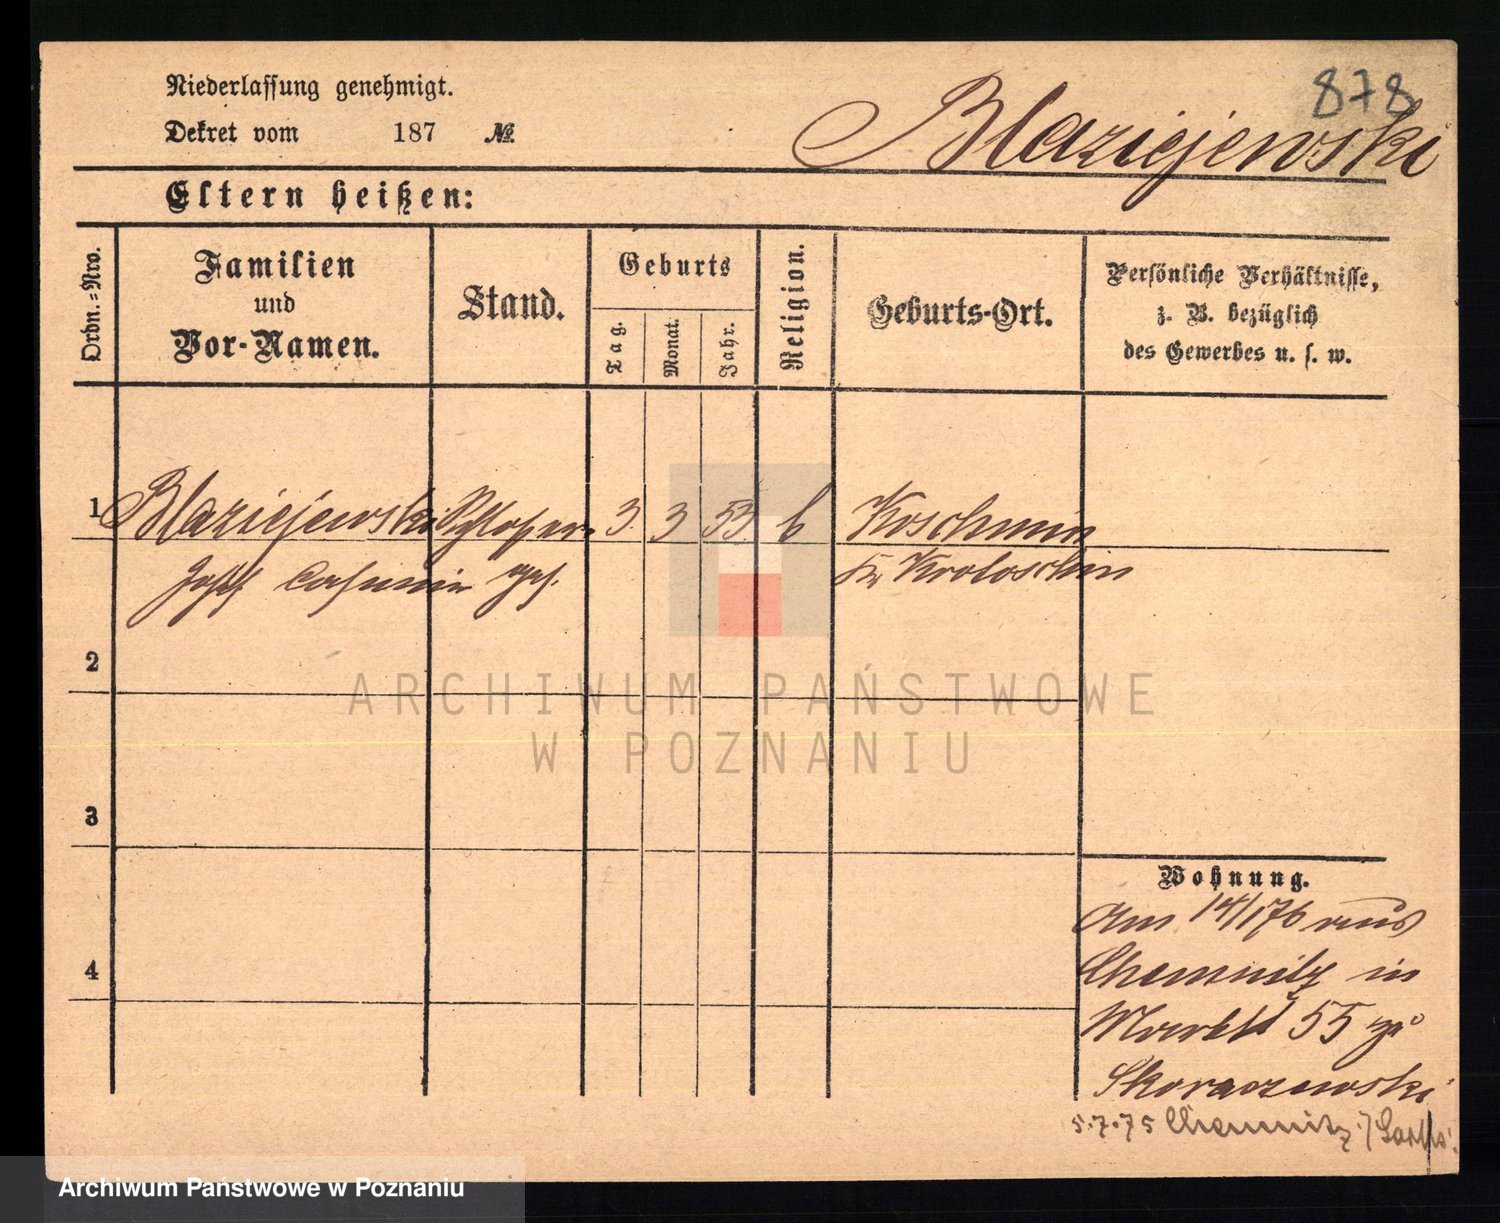 Niederlassung genehmigt.
878
Dekret vom 187 No.
Blaziejewski
Eltern heißen:
Ordn.=Nro.
Familien und Vor-Namen.
Stand.
Geburts
Tag.
Monat.
Jahr.
Religion.
Geburts-Ort.
Persönliche Verhältnisse,
z. B. bezüglich
des Gewerbes u. s. w.
1 Blaziejewski 3 3 53 Koschmin
Josef Casimir Kr Krotoschin
2
3
4
Wohnung.
Am 14/1 76 aus
Chemnitz in
Markt 55 zu
Skoraczewski
5.7.75 Chemnitz
ARCHIWUM PAŃSTWOWE
W POZNANIU
Archiwum Państwowe w Poznaniu